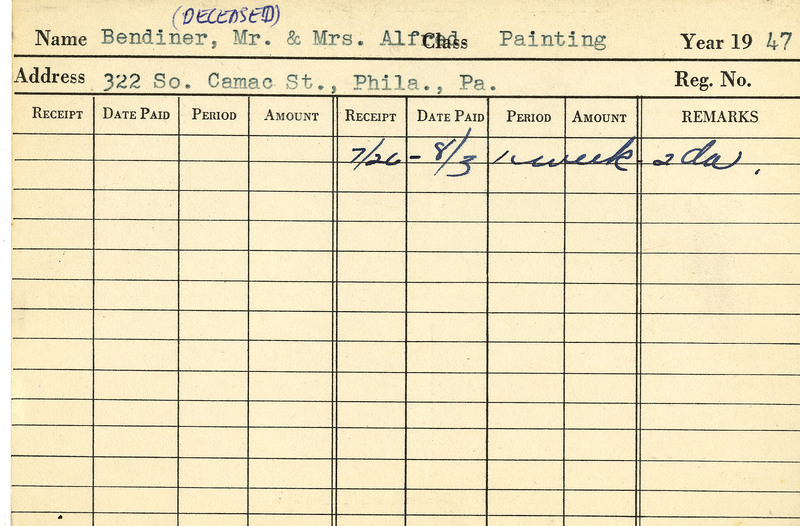 (DECEASED)
Name Bendiner, Mr. & Mrs. Alfred Class Painting Year 19 47
Address 322 So. Camac St., Phila., Pa. Reg. No.
RECEIPT DATE PAID PERIOD AMOUNT RECEIPT DATE PAID PERIOD AMOUNT REMARKS
7/26 - 8/3 1 week - 2 da.